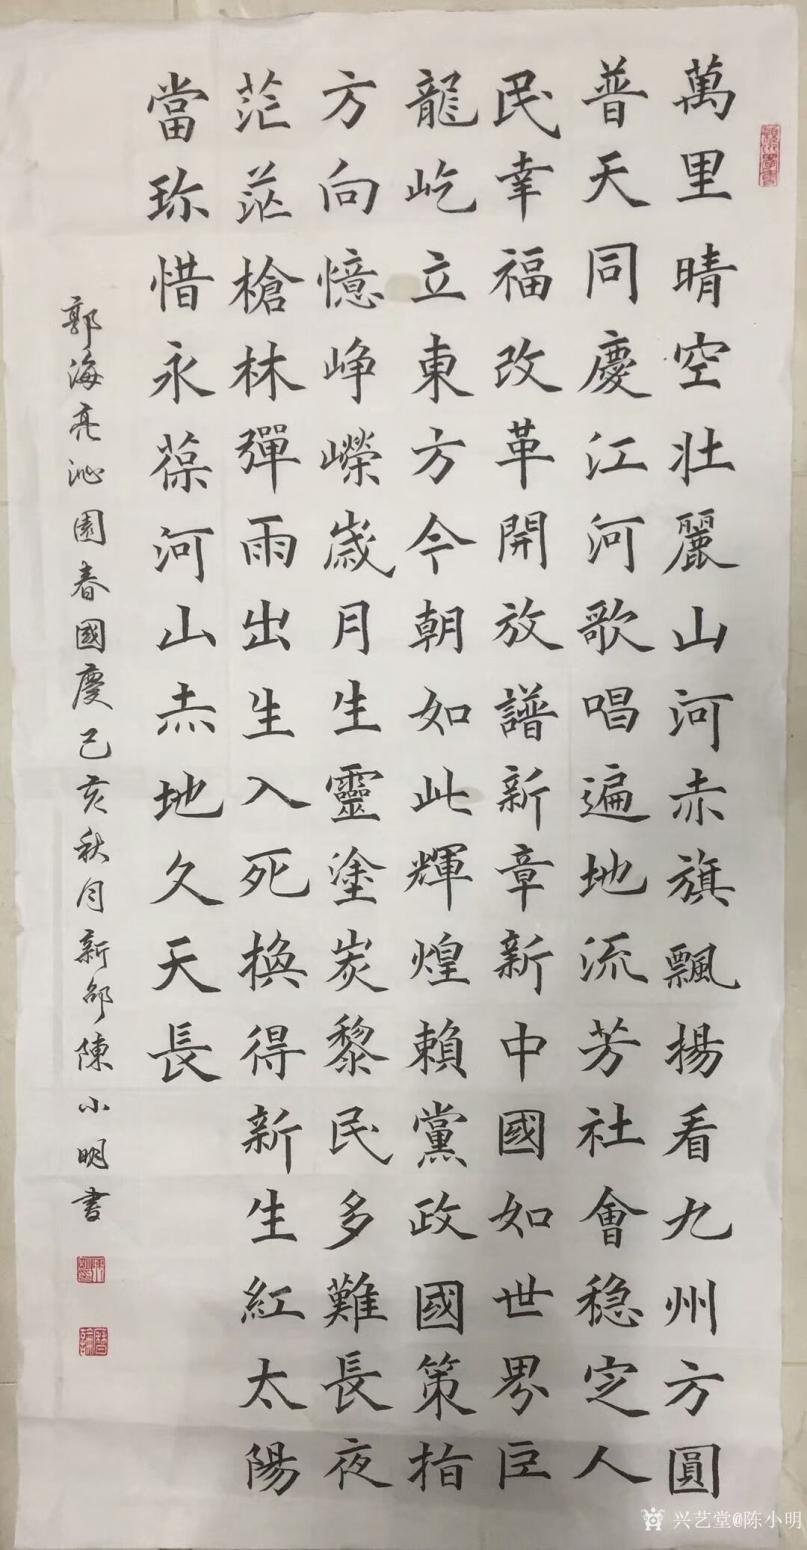 萬里晴空壯麗山河赤旗飄揚看九州方圓
普天同慶江河歌唱遍地流芳社會稳定人
民幸福改革開放譜新章新中國如世界巨
龍屹立東方今朝如此輝煌賴黨政國策指
方向憶崢嶸歲月生靈塗炭黎民多難長夜
茫茫槍林彈雨出生入死換得新生紅太陽
當珎惜永葆河山赤地久天長
郭海亮沁園春國慶己亥秋月新邵陳小明書
兴艺堂@陈小明